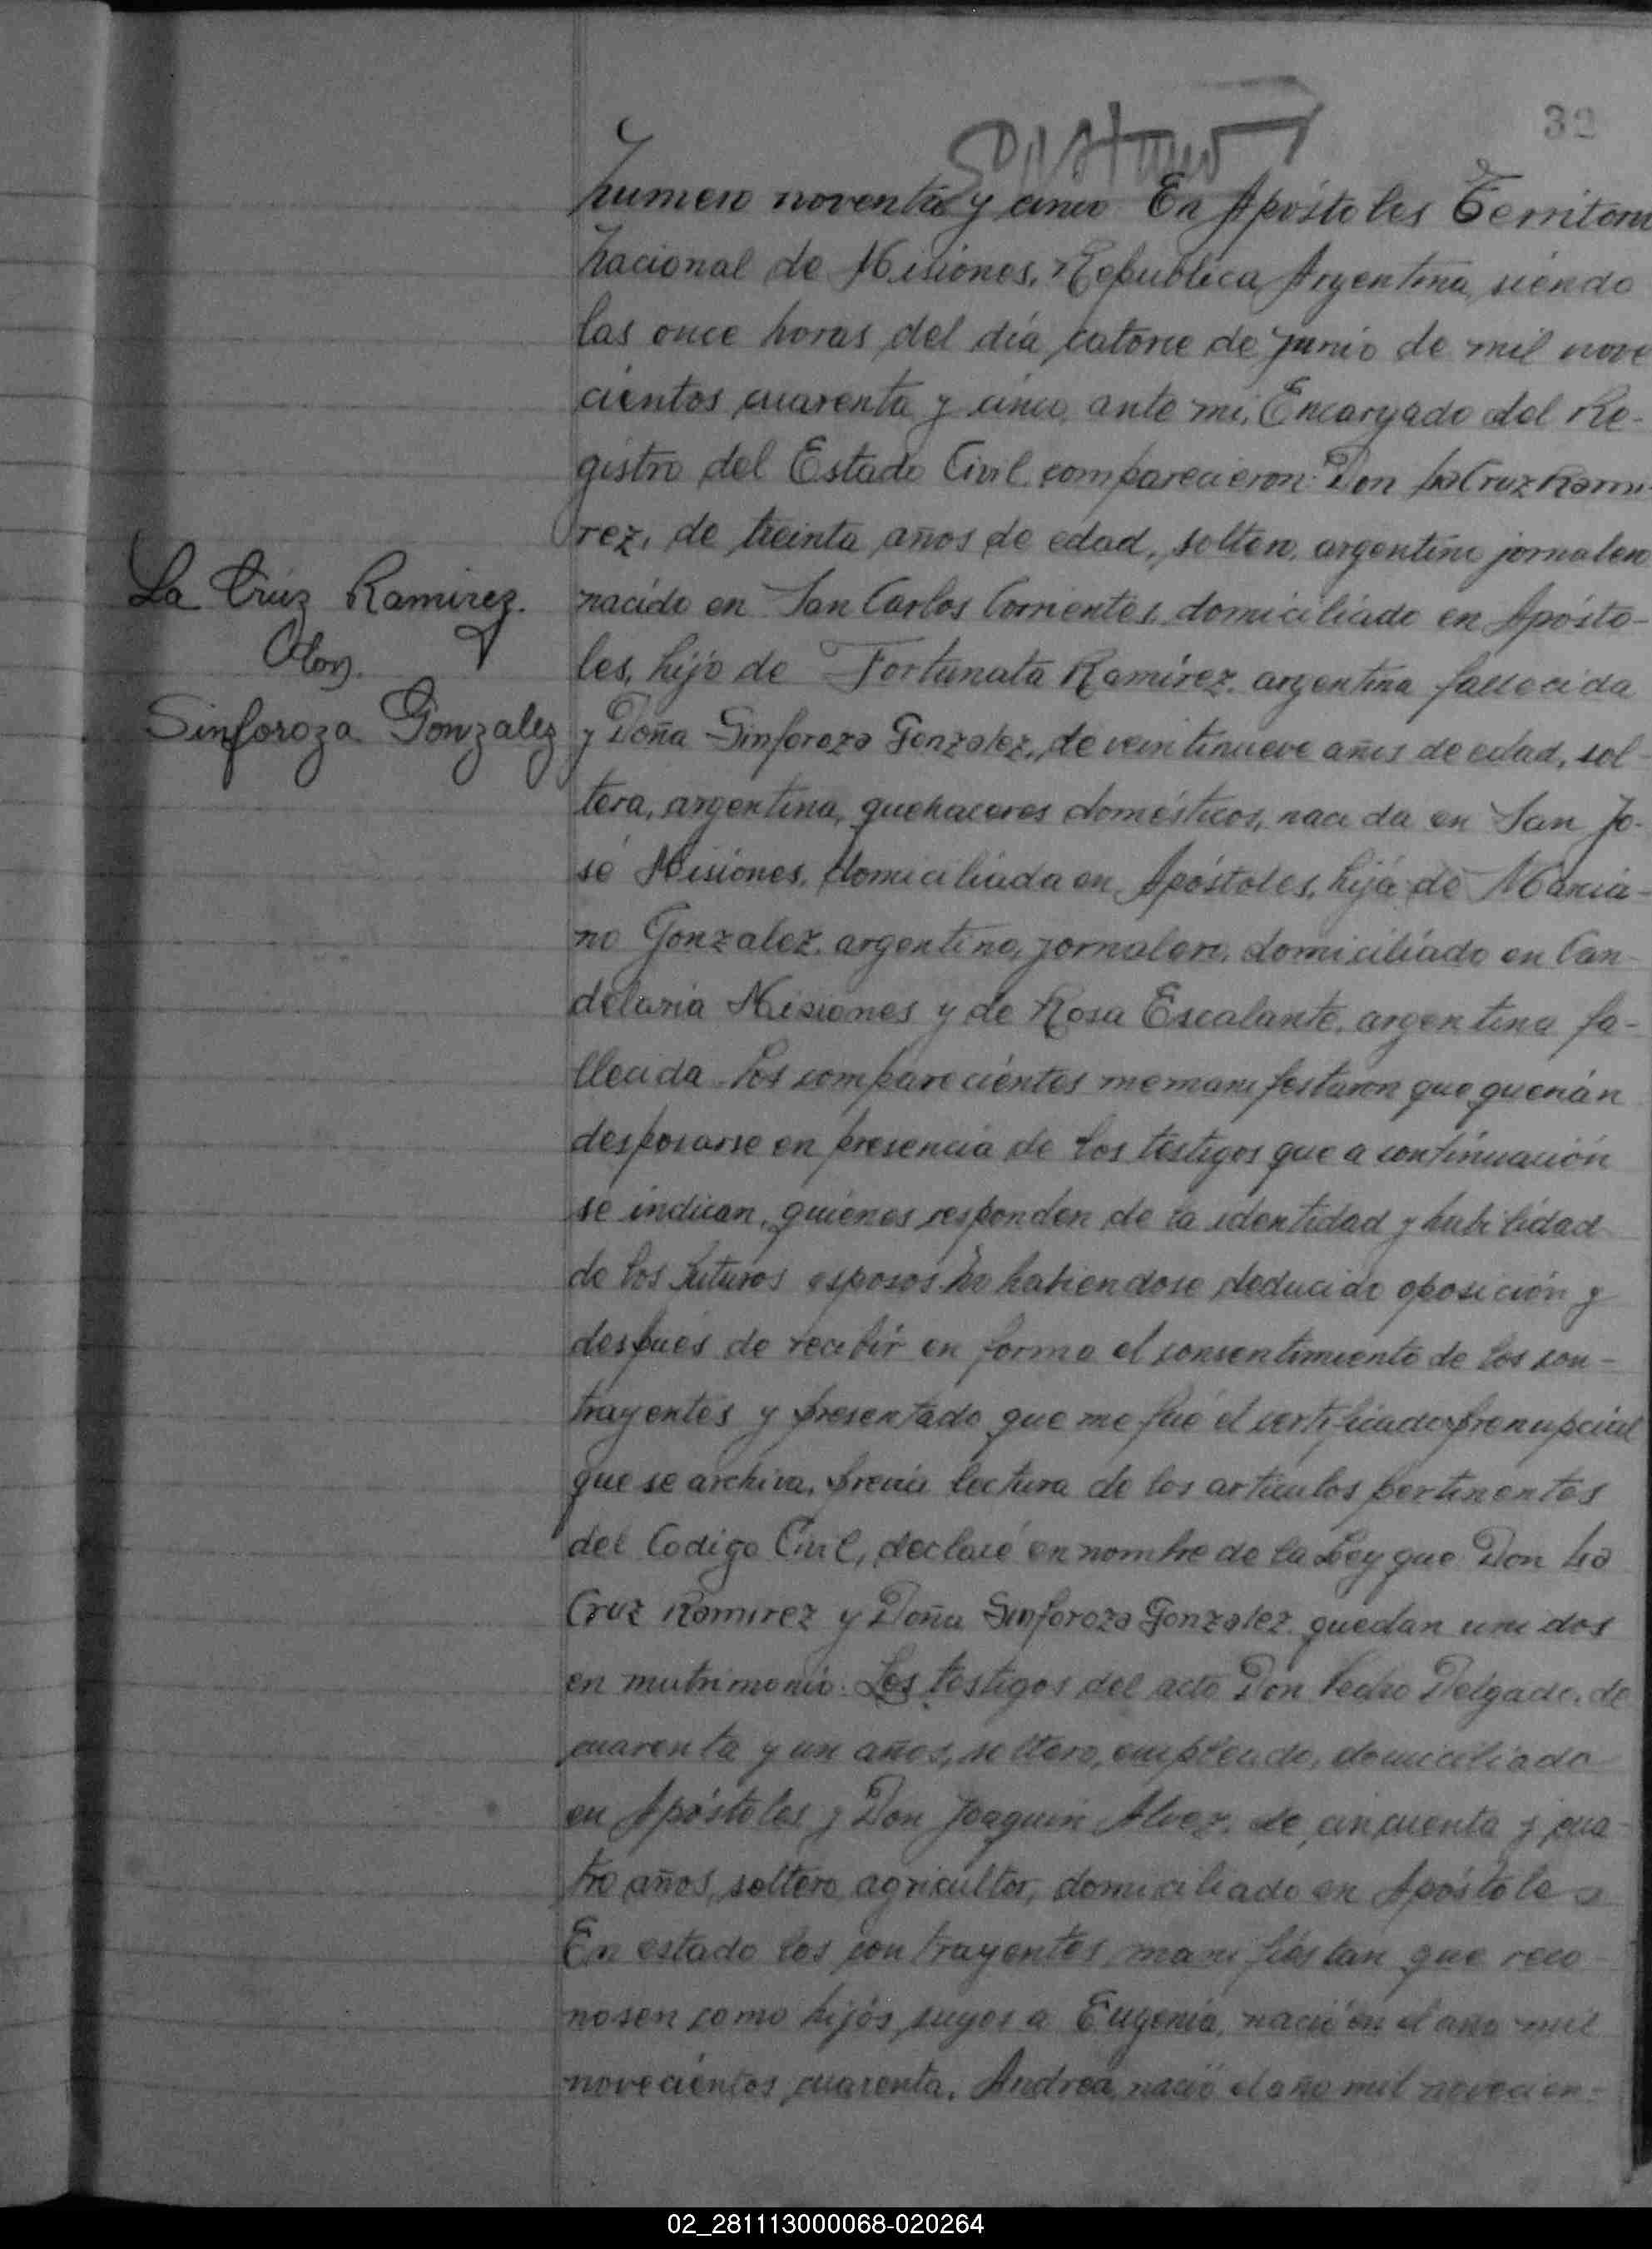 32
Numero noventa y cinco En Apóstoles Territorio
Nacional de Misiones, Republica Argentina, siendo
las once horas del día catorce de junio de mil nove
cientos cuarenta y cinco, ante mi, Encargado del Re-
gistro del Estado Civil comparecieron: Don La Cruz Rami
rez, de treinta años de edad, soltero, argentino jornalero
nacido en San Carlos Corrientes, domiciliado en Aposto-
les, hijo de Fortunata Ramírez, argentina fallecida
y Doña Sinforoza Gonzalez, de veintinueve años de edad, sol-
tera, argentina, quehaceres domésticos, nacida en San Jo-
sé Misiones, domiciliada en Apóstoles, hija de Marcia-
no Gonzalez, argentino, jornalero, domiciliado en Can-
delaria Misiones y de Rosa Escalante, argentina fa-
llecida. Los comparecientes me manifestaron que querián
desposarse en presencia de los testigos que a continuación
se indican, quienes responden de la identidad y habilidad
de los futuros esposos. No habiendose deducido oposición y
despues de recibir en forma el consentimiento de los con-
trayentes y presentado que me fué el certificado prenupcial
que se archiva, previa lectura de los articulos pertinentes
del Codigo Civil, declaré en nombre de la Ley que Don La
Cruz Ramirez y Doña Sinforoza Gonzalez quedan unidos
en matrimonio. Los testigos del acto Don Pedro Delgado, de
cuarenta y un años, soltero, empleado, domiciliado
en Apóstoles y Don Joaquin Alvez, de cincuenta y cua-
tro años, soltero agricultor, domiciliado en Apóstoles
En estado los contrayentes manifiestan que reco-
nosen como hijos suyos a Eugenia, nació en el año mil
novecientos cuarenta, Andrea, nació el año mil novecien-
La Cruz Ramirez.
Con
Sinforoza Gonzalez
02_281113000068-020264